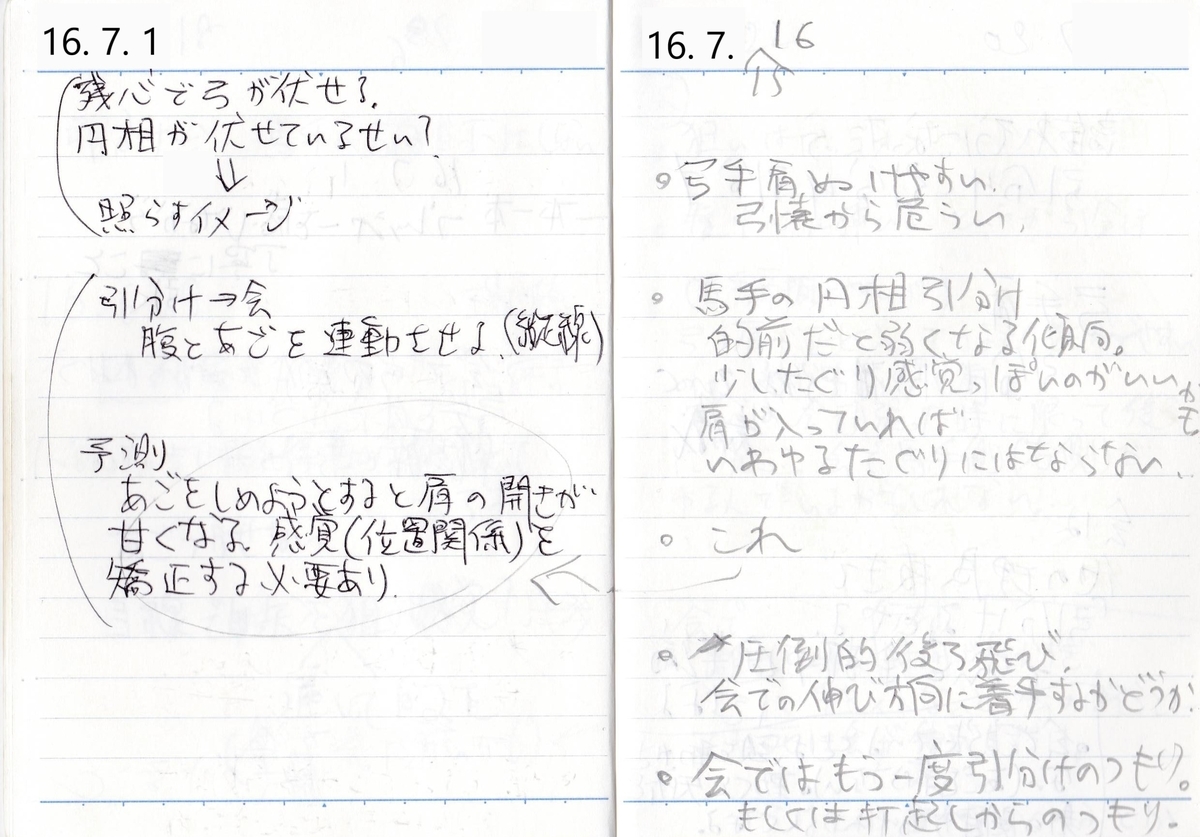 16.7.1
残心で弓が伏せる.
円相が伏せているせい?
⇓
照らすイメージ
引分け→会
腹とあごを連動させる.(縦線)
予測
あごをしめようとすると肩の開きが
甘くなる. 感覚(位置関係)を
矯正する必要あり.
16.7. 16
15
弓手肩ぬけやすい.
引懐から危うい.
馬手の円相引分け
的前だと弱くなる傾向。
少したぐり感覚っぽいのがいいかも
肩が入っていれば
いわゆるたぐりにはならない.
これ
圧倒的後ろ飛び.
会での伸び方向に着手するかどうか.
会ではもう一度引分けのつもり。
もしくは打起しからのつもり。